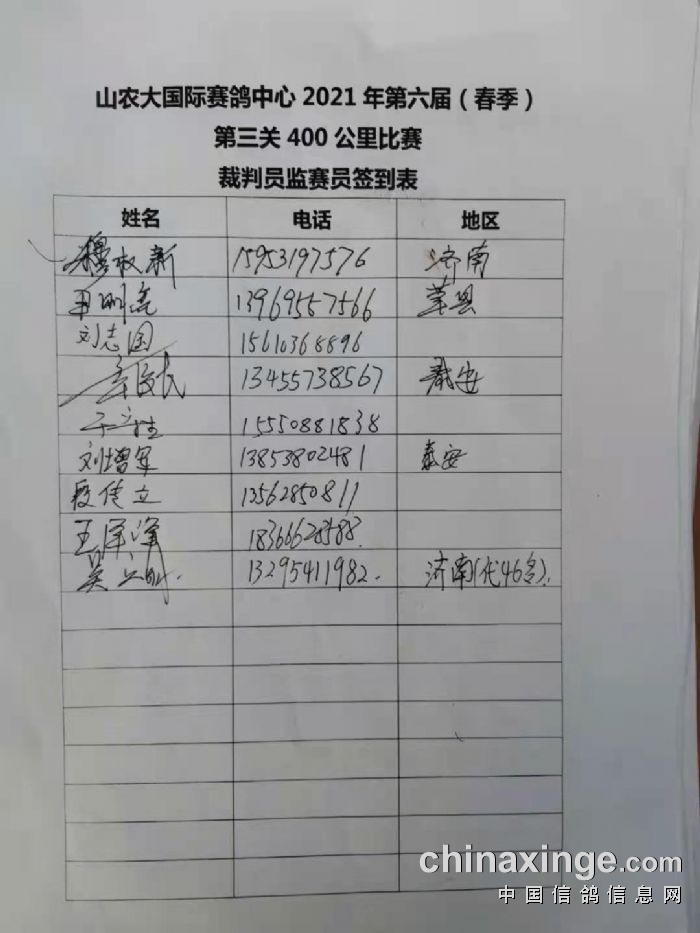 山农大国际赛鸽中心 2021 年第六届（春季）
第三关 400 公里比赛
裁判员监赛员签到表
姓名 电话 地区
穆权新 15953197576 济南
13969557566 莘县
刘志国 15610368896
13455738567 泰安
15550881838
刘增军 13853802481 泰安
段传立 13562850811
王泽峰 18366628588.
吴立明. 13295411982. 济南(代46名).
chinaxinge.com
中国信鸽信息网